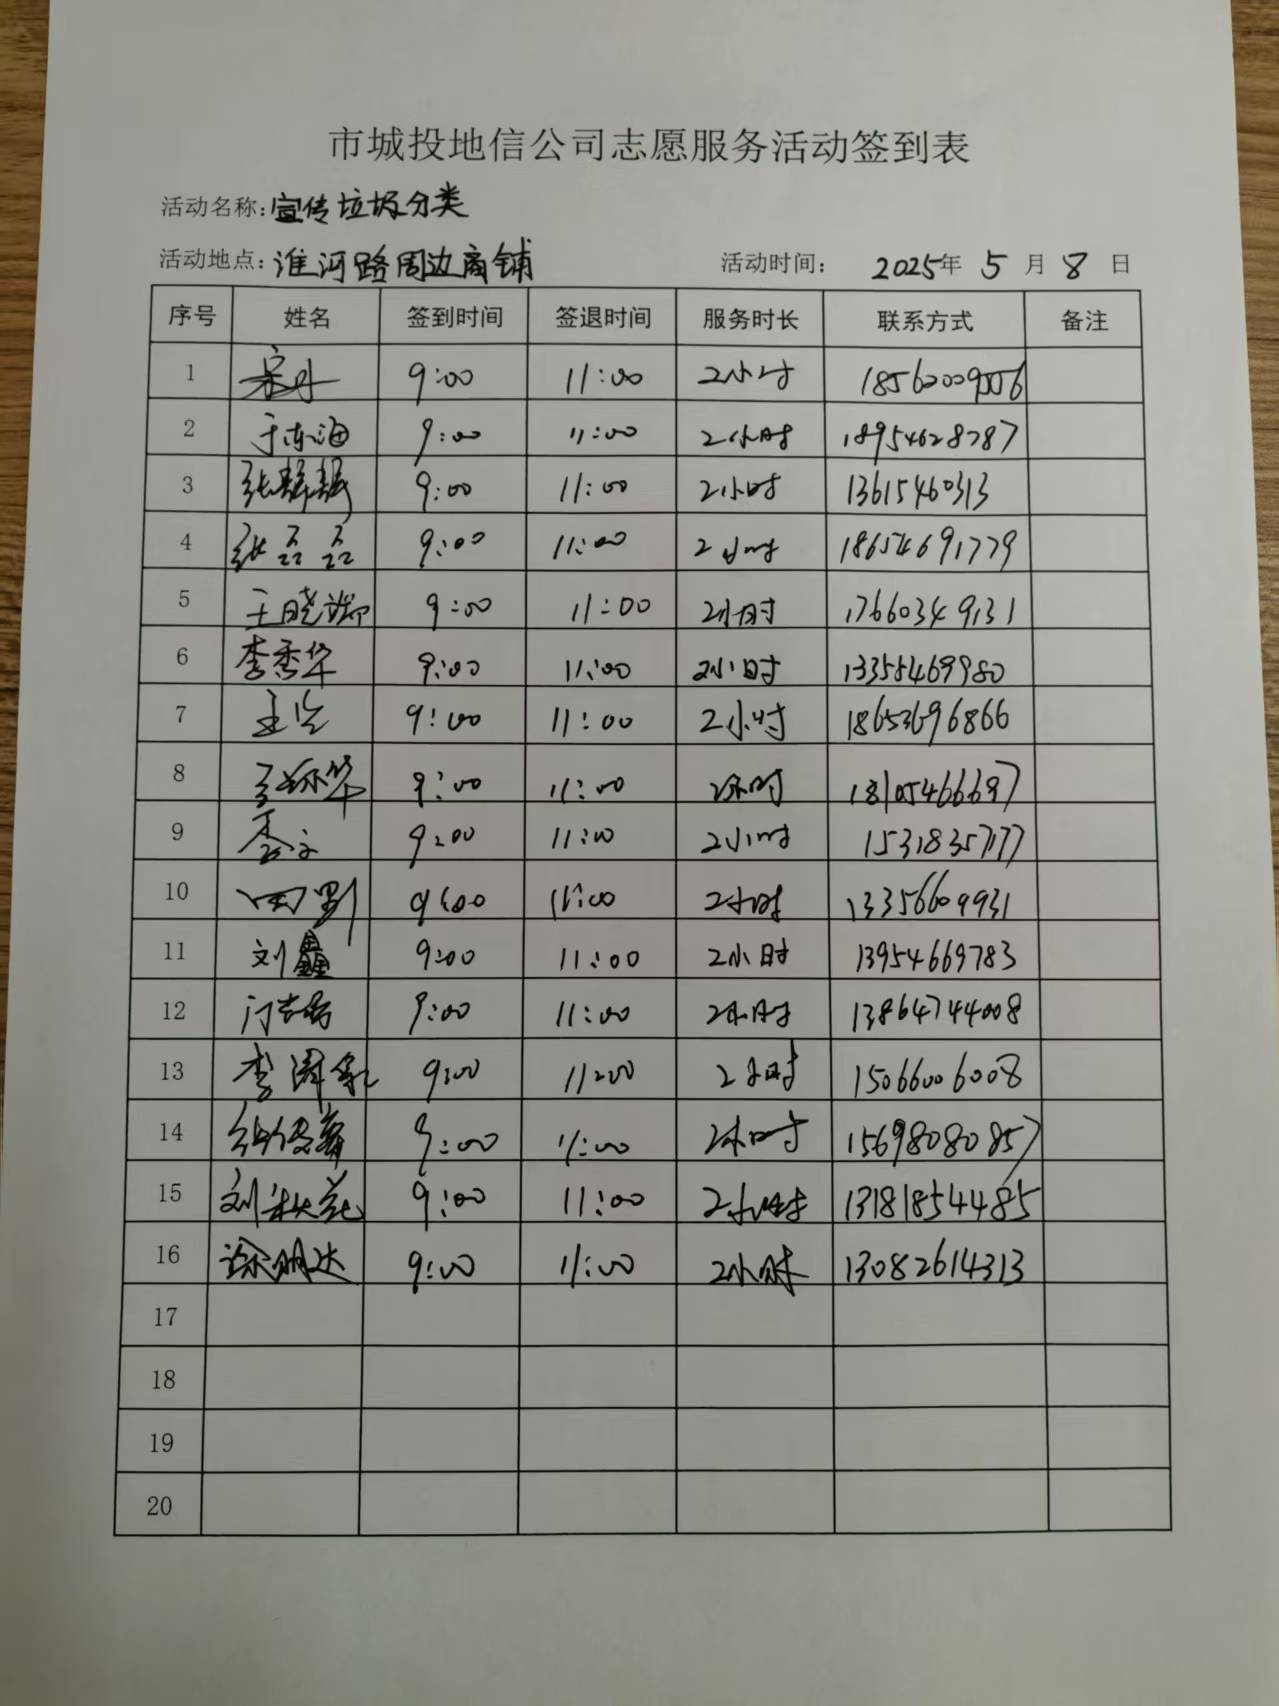 市城投地信公司志愿服务活动签到表
活动名称：宣传垃圾分类
活动地点：淮河路周边商铺 活动时间： 2025年 5 月 8 日
序号 姓名 签到时间 签退时间 服务时长 联系方式 备注
1 9:00 11:00 2小时
2 于东海 9:00 11:00 2小时 18954628787
3 9:00 11:00 2小时 13615460313
4 张磊磊 9:00 11:00 2小时 18654691779
5 王晓瑞 9:00 11:00 2小时 17660349131
6 李秀华 9:00 11:00 2小时 13355469980
7 9:00 11:00 2小时 18653696866
8 9:00 11:00 2小时 18105466697
9 9:00 11:00 2小时 15318357177
10 9:00 11:00 2小时 13356609931
11 刘鑫 9:00 11:00 2小时 13954669783
12 9:00 11:00 2小时 13864744008
13 9:00 11:00 2小时 15066006008
14 9:00 11:00 2小时 15698080857
15 刘秋苑 9:00 11:00 2小时 13181854485
16 徐明达 9:00 11:00 2小时 13082614313
17
18
19
20